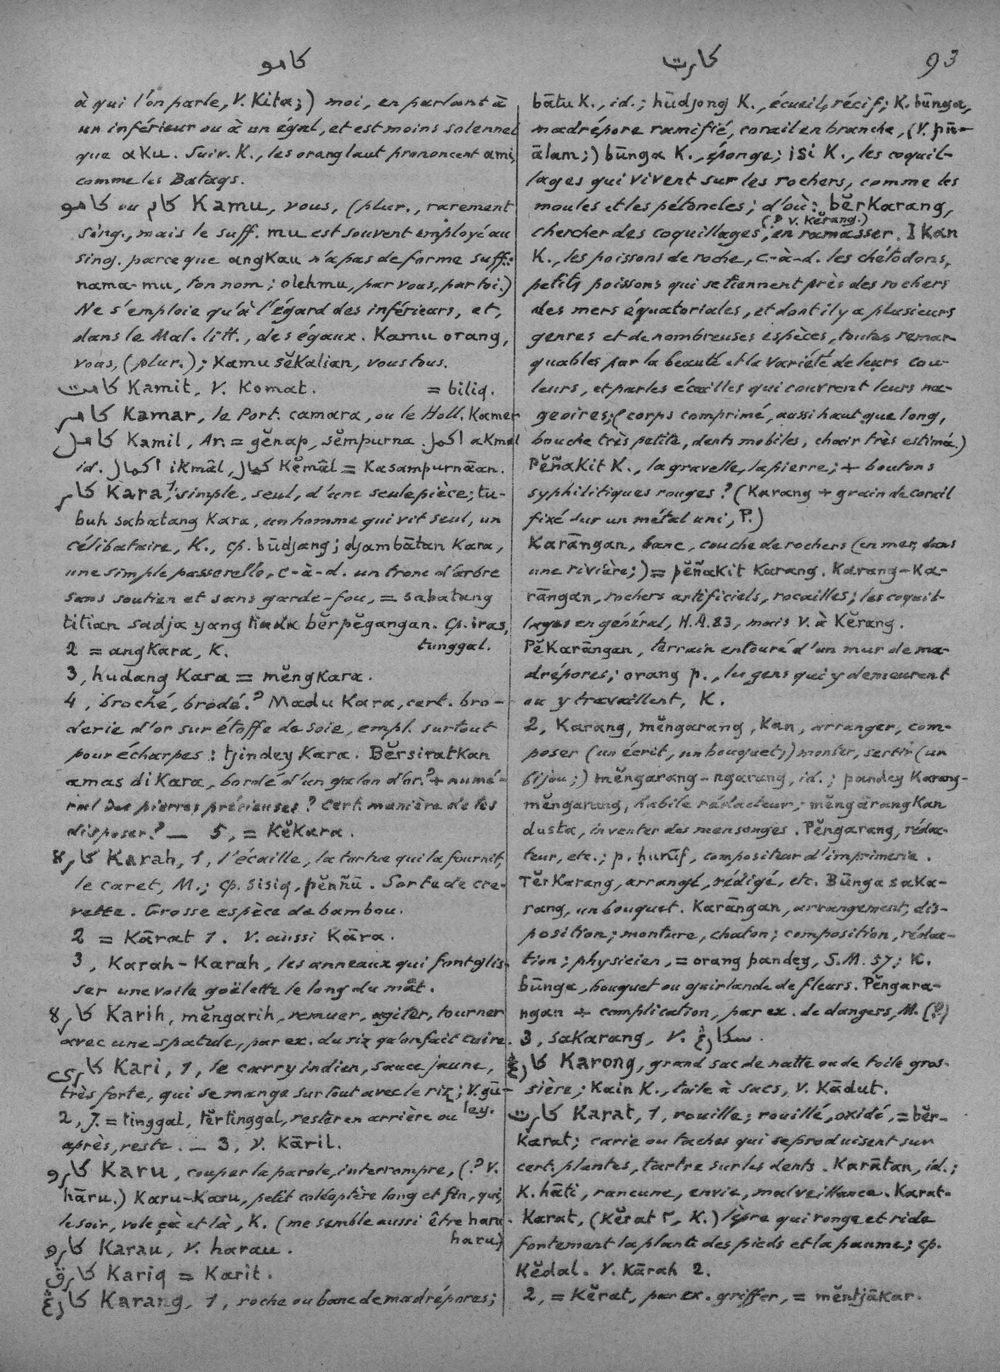 كامو
كارت
93
à qui l'on parle, V. Kita;) moi, en parlant à
un inférieur ou à un égal, et est moins solennel
que aku. Suiv. K., les orang laut prononcent ami,
comme les Bataqs.
كامو ou كام Kamu, vous, (plur., rarement
sing., mais le suff. mu est souvent employé au
sing. parce que angkau n'a pas de forme suff.:
nama-mu, ton nom; olehmu, par vous, par toi.)
Ne s'emploie qu'à l'égard des inférieurs, et,
dans le Mal. litt., des égaux. Kamu orang,
vous, (plur.); Kamu sĕkalian, vous tous.
كامت Kamit, V. Komat. = biliq.
كامر Kamar, le Port. camara, ou le Holl. Kamer
كامل Kamil, Ar. = gĕnap, sĕmpurna. اكمل akmal
id. اكمال ikmâl, كمال Kĕmâl = Kasampurnāan.
كار Kara, 1, simple, seul, d'une seule pièce; tu-
buh sabatang Kara, un homme qui vit seul, un
célibataire, K., cp. būdjang; djambātan Kara,
une simple passerelle, c-à-d. un tronc d'arbre
sans soutien et sans garde-fou, = sabatang
titian sadja yang tiada bĕrpĕgangan. Cp. iras,
tunggal.
2 = angkara, K.
3, hudang Kara = mĕngkara.
4, broché, brodé? Madu Kara, cert. bro-
derie d'or sur étoffe de soie, empl. surtout
pour écharpes: tjindey Kara. Bĕrsiratkan
amas di Kara, bordé d'un galon d'or? + numé-
ral des pierres précieuses? Cert. manière de les
disposer? — 5, = Kĕkara.
كاره Karah, 1, l'écaille, la tortue qui la fournit,
le caret, M.; cp. sisiq, pĕnñū. Sorte de cre-
vette. Grosse espèce de bambou.
2 = Kārat 1. V. aussi Kāra.
3, Karah-Karah, les anneaux qui font glis-
ser une voile goëlette le long du mât.
كاره Karih, mĕngarih, remuer, agiter, tourner
avec une spatule, par ex. du riz qu'on fait cuire.
كاري Kari, 1, le carry indien, sauce jaune,
très forte, qui se mange surtout avec le riz; V. gū-
ley.
2, J. = tinggal, tĕrtinggal, rester en arrière ou
après, reste. — 3, V. Kāril.
كارو Karu, couper la parole, interrompre, (? V.
hāru.) Karu-Karu, petit coléoptère long et fin, qui,
le soir, vole çà et là, K. (me semble aussi être haru
haru)
كارو Karau, V. harau.
كارق Kariq = Karit.
كارڠ Karang, 1, roche ou banc de madrépores;
bātu K., id.; hūdjong K., écueil, récif; K. būnga,
madrépore ramifié, corail en branche, (V. pū-
ālam;) būnga K., éponge; isi K., les coquil-
lages qui vivent sur les rochers, comme les
moules et les pétoncles; d'où: bĕrKarang,
(? V. Kĕrang.)
chercher des coquillages, en ramasser. Ikan
K., les poissons de roche, c-à-d. les chétodons,
petits poissons qui se tiennent près des rochers
des mers équatoriales, et dont il y a plusieurs
genres et de nombreuses espèces, toutes remar
quables par la beauté et la variété de leurs cou-
leurs, et par les écailles qui couvrent leurs na-
geoires; (corps comprimé, aussi haut que long,
bouche très petite, dents mobiles, chair très estimée.)
Pĕñakit K., la gravelle, la pierre; + boutons
syphilitiques rouges? (Karang + grain de corail
fixé sur un métal uni, P.)
Karāngan, banc, couche de rochers (en mer, dans
une rivière;) = pĕñakit Karang. Karang-Ka-
rāngan, rochers artificiels, rocailles; les coquil-
lages en général, H.A. 83, mais V. à Kĕrang.
PĕKarāngan, terrain entouré d'un mur de ma-
drépores; orang p., les gens qui y demeurent
ou y travaillent, K.
2, Karang, mĕngarang, Kan, arranger, com-
poser (un écrit, un bouquet;) monter, sertir (un
bijou;) mĕngarang-ngarang, id.; pandey Karang-
mĕngarang, habile rédacteur; mĕngārangKan
dusta, inventer des mensonges. Pĕngarang, rédac-
teur, etc.; p. ḥurūf, compositeur d'imprimerie.
TĕrKarang, arrangé, rédigé, etc. Būnga saKa-
rang, un bouquet. Karāngan, arrangement, dis-
position; monture, chaton; composition, rédac-
tion; physicien, = orang pandey, S.M. 57; K.
būnga, bouquet ou guirlande de fleurs. Pĕngara-
ngan + complication, par ex. de dangers, M. (?)
3, saKarang, V. سكارڠ.
كارڠ Karong, grand sac de natte ou de toile gros-
sière; Kain K., toile à sacs, V. Kādut.
كارت Karat, 1, rouille; rouillé, oxidé, = bĕr-
Karat; carie ou taches qui se produisent sur
cert. plantes, tartre sur les dents. Karātan, id.;
K. hāti, rancune, envie, malveillance. Karat-
Karat, (Kĕrat ٢, K.) lèpre qui ronge et ride
fortement la plante des pieds et la paume; cp.
Kĕdal. V. Kārah 2.
2, = Kĕrat, par ex. griffer, = mĕntjāKar.